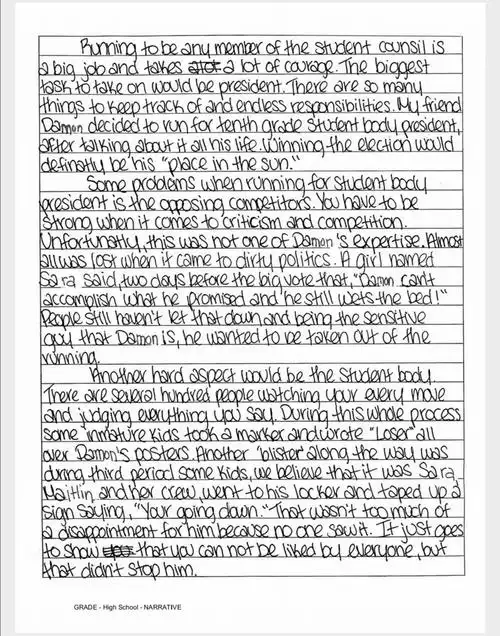 Running to be any member of the student counsil is
a big job and takes a lot of courage. The biggest
task to take on would be president. There are so many
things to keep track of and endless responsibilities. My friend
Damon decided to run for tenth grade student body president,
after talking about it all his life. Winning the election would
definatly be his "place in the sun."
Some problems when running for student body
president is the opposing competitors. You have to be
strong when it comes to criticism and competition.
Unfortunatly, this was not one of Damon's expertise. Almost
all was lost when it came to dirty politics. A girl named
Sara said, two days before the big vote that, "Damon can't
accomplish what he promised and he still wets the bed!"
People still haven't let that down and being the sensitive
guy that Damon is, he wanted to be taken out of the
running.
Another hard aspect would be the student body.
There are several hundred people watching your every move
and judging everything you say. During this whole process
some immature kids took a marker and wrote "Loser" all
over Damon's posters. Another "blister" along the way was
during third period some kids, we believe that it was Sara
and her crew, went to his locker and taped up a
sign saying, "Your going down." That wasn't too much of
a disappointment for him because no one saw it. It just goes
to show that you can not be liked by everyone, but
that didn't stop him.
GRADE - High School - NARRATIVE